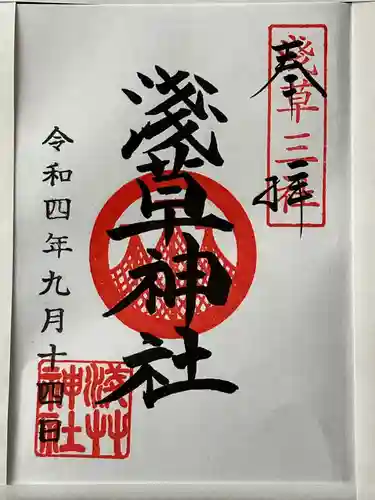 奉拝
淺草三社
淺草神社
令和四年九月十四日
淺草神社